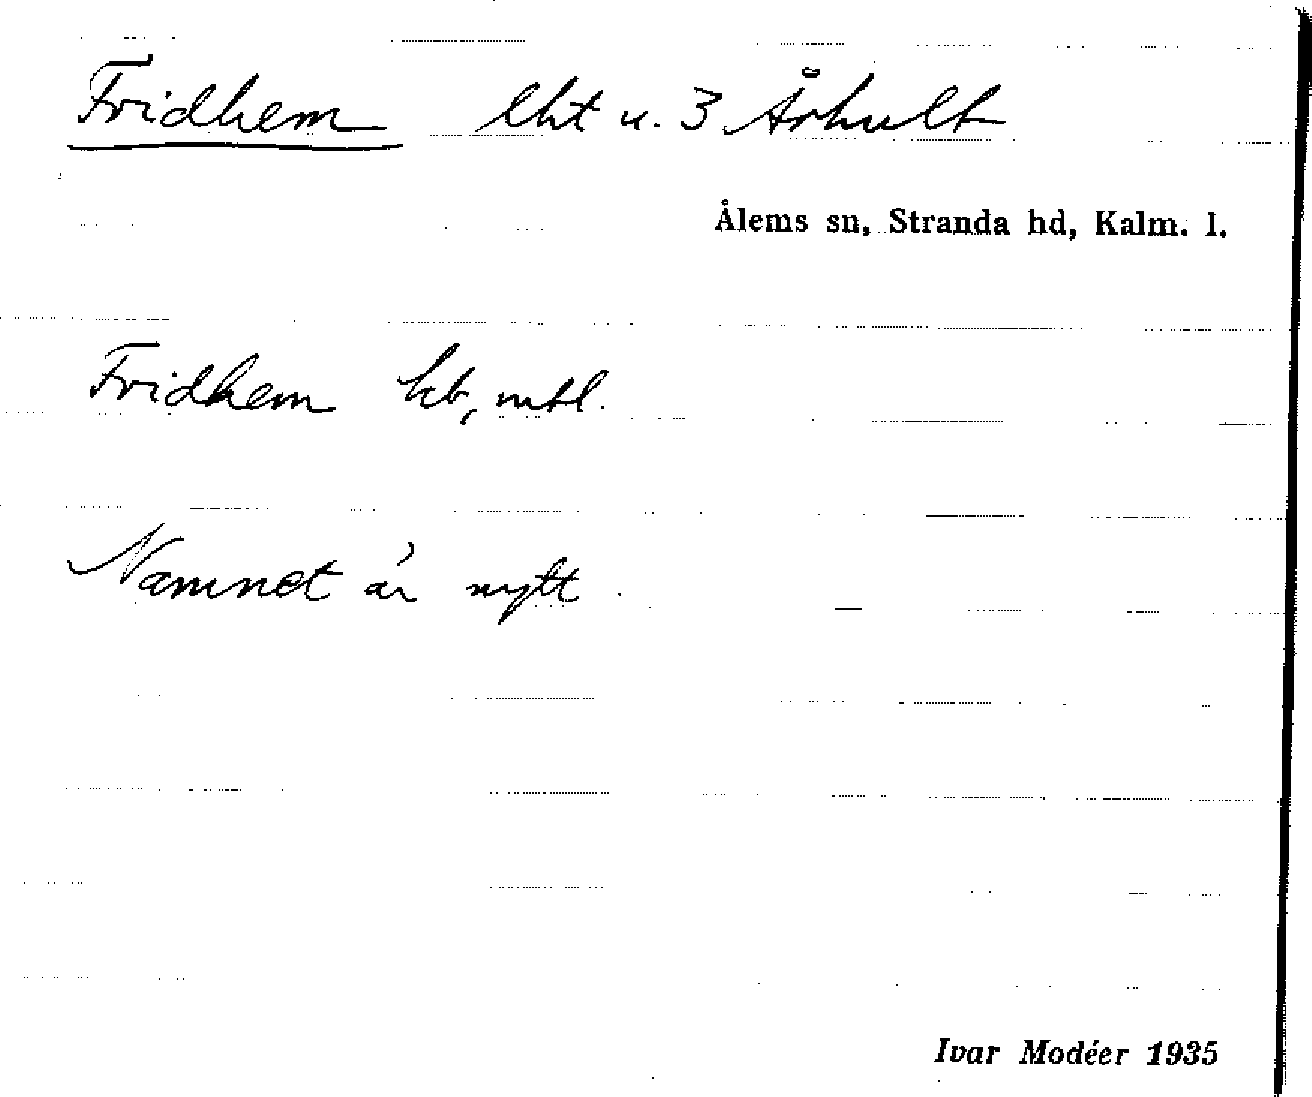 Fridhem lht u. 3 Århult
Ålems sn, Stranda hd, Kalm. l.
Fridhem kb, mtl.
Namnet är nytt.
Ivar Modéer 1935